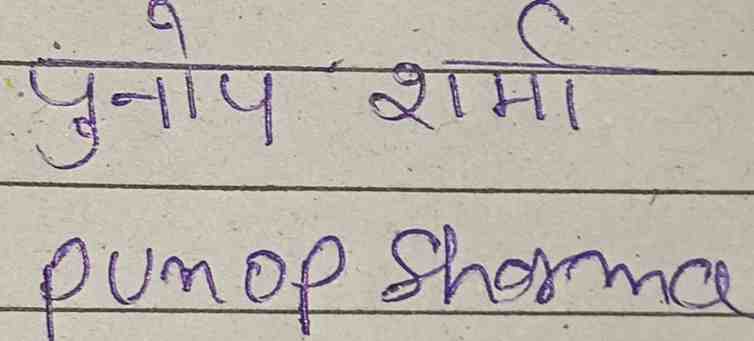 पुनोप शर्मा
punop Sharma